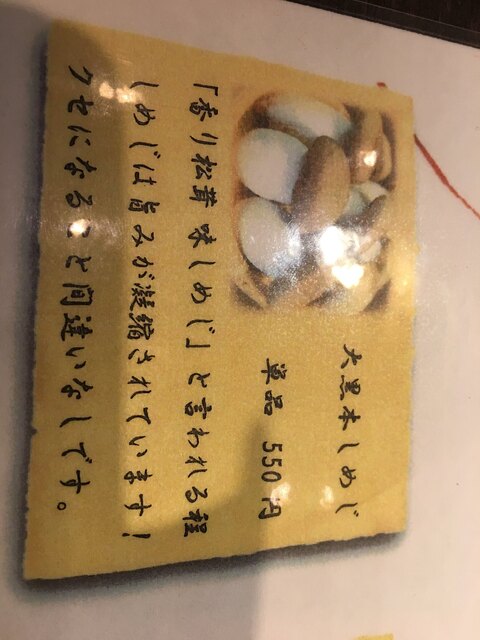 大黒本しめじ
単品 550円
「香り松茸 味しめじ」と言われる程
しめじは旨みが凝縮されています！
クセになること間違いなしです。